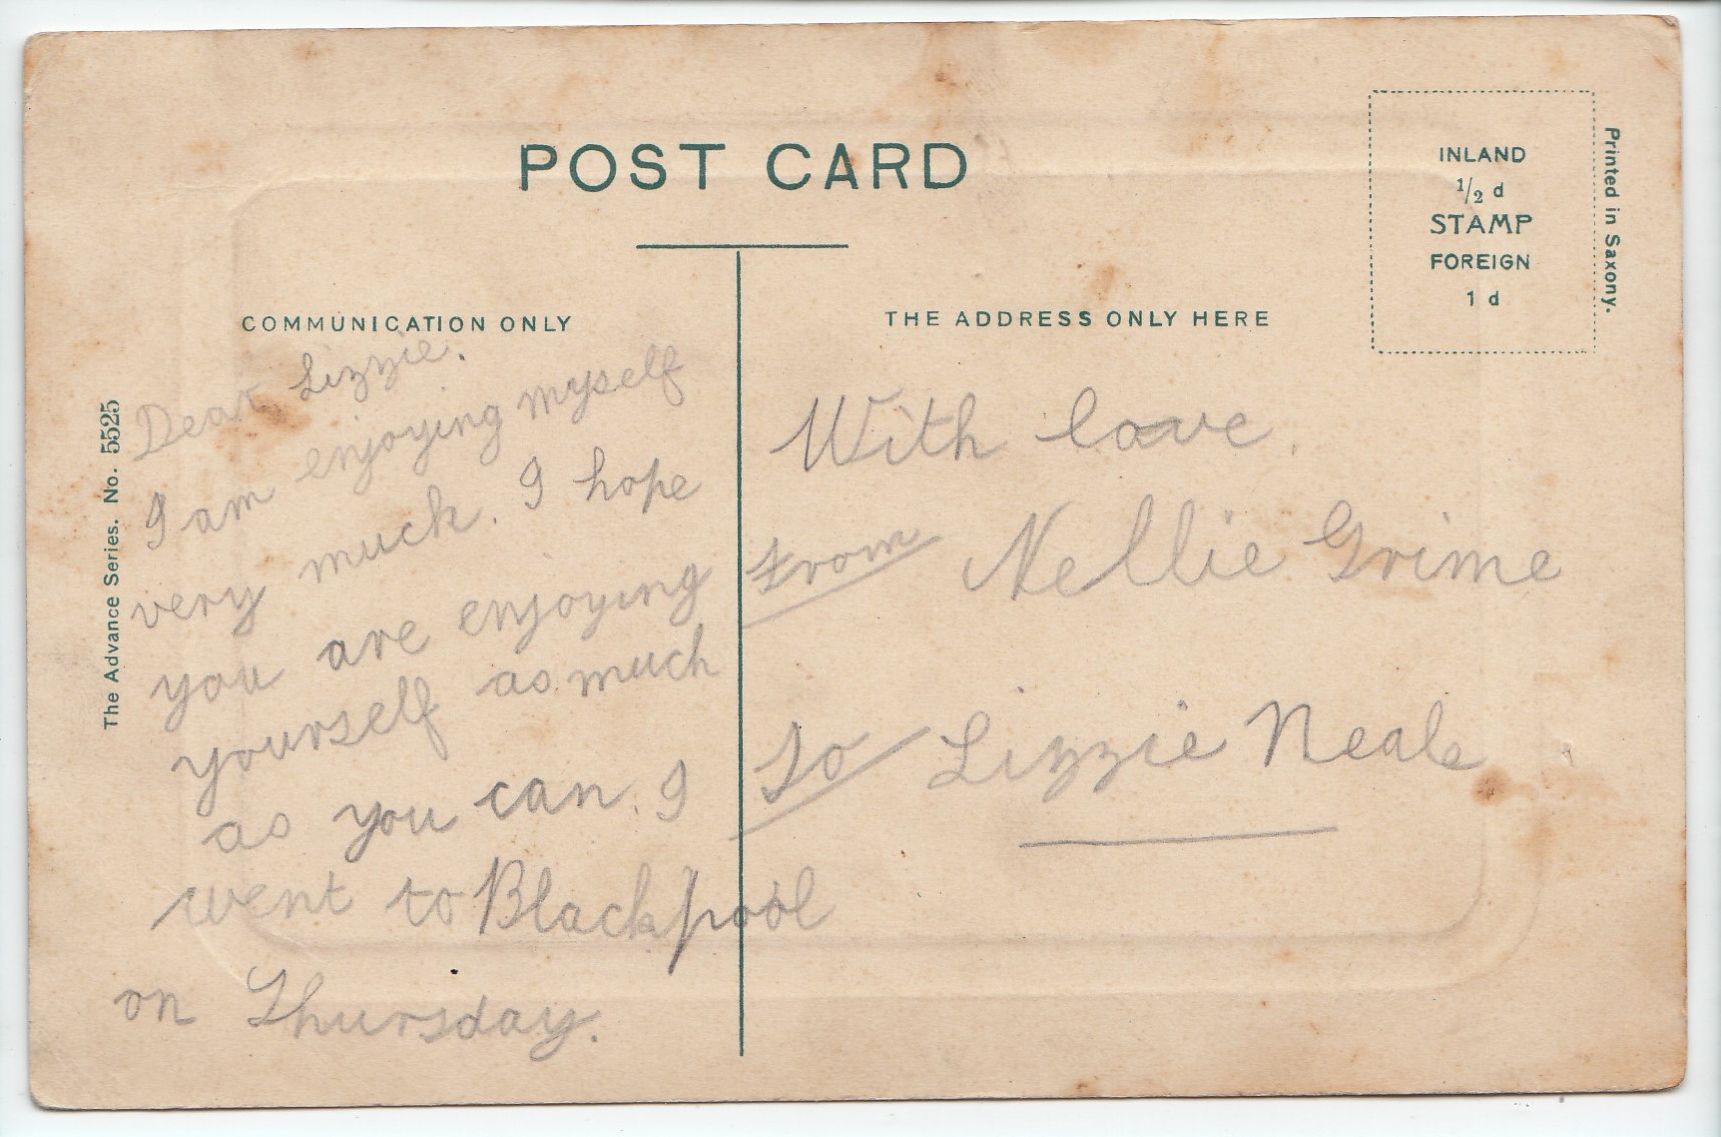 POST CARD
INLAND
1/2 d
STAMP
FOREIGN
1 d
Printed in Saxony.
COMMUNICATION ONLY
THE ADDRESS ONLY HERE
The Advance Series. No. 5525
Dear Lizzie.
I am enjoying myself
very much. I hope
you are enjoying
yourself as much
as you can. I
went to Blackpool
on Thursday.
With love.
from Nellie Grime
To Lizzie Neale